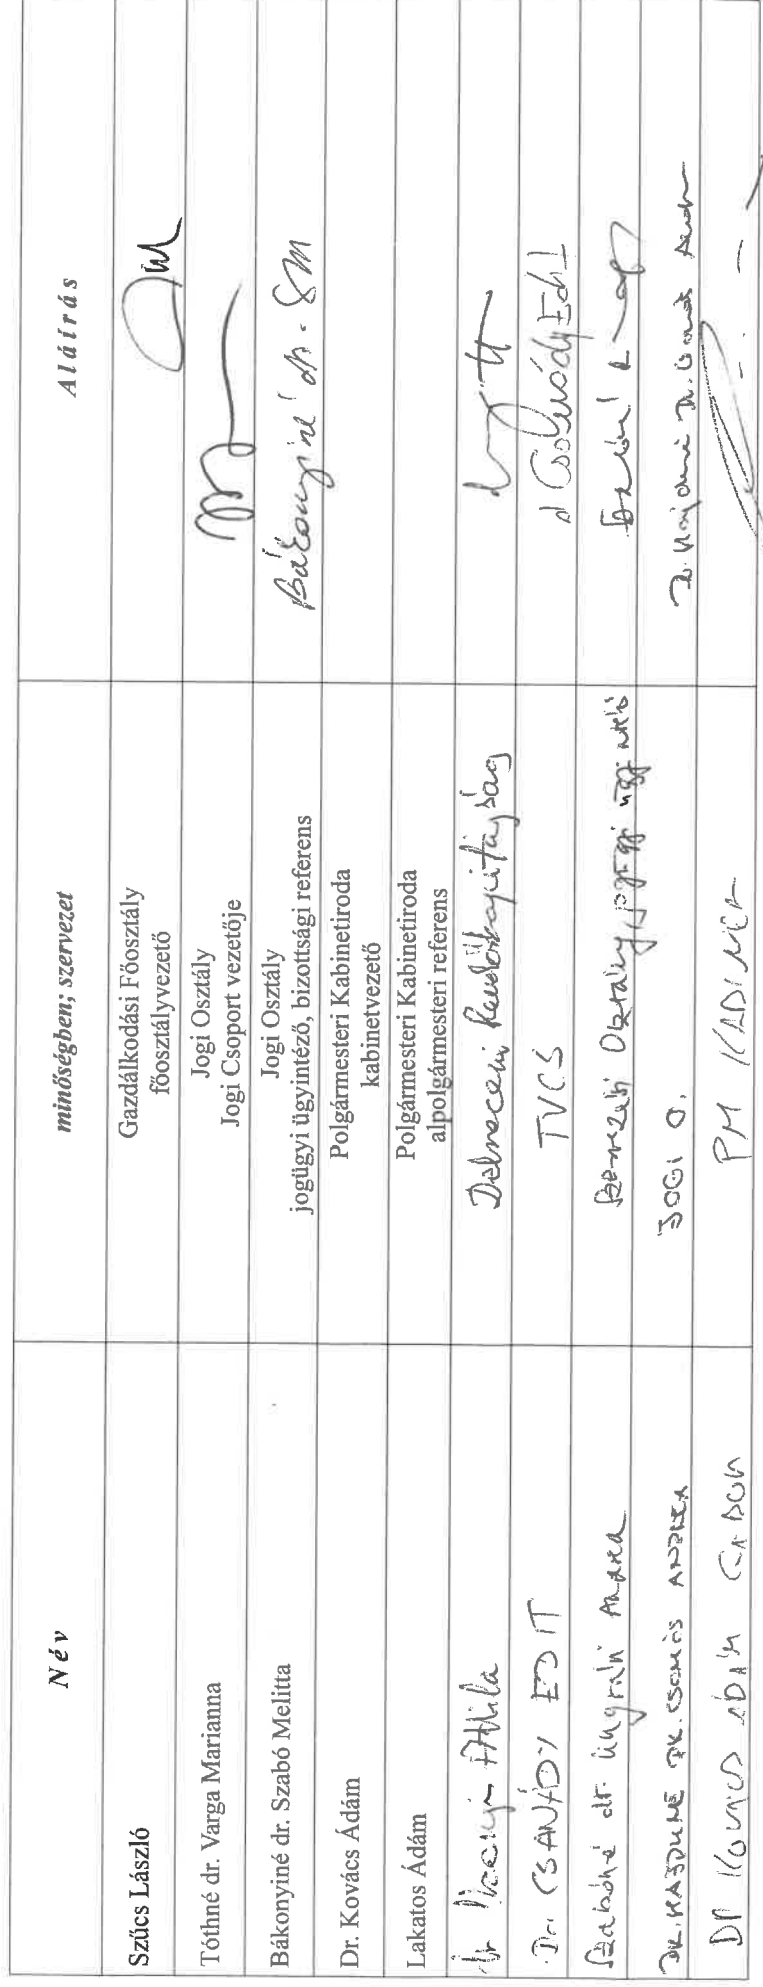 Név minőségben; szervezet Aláírás
Szűcs László
Gazdálkodási Főosztály
főosztályvezető
Tóthné dr. Varga Marianna
Jogi Osztály
Jogi Csoport vezetője
Bákonyiné dr. Szabó Melitta
Jogi Osztály
jogügyi ügyintéző, bizottsági referens
Bákonyiné dr. SM
Dr. Kovács Ádám
Polgármesteri Kabinetiroda
kabinetvezető
Lakatos Ádám
Polgármesteri Kabinetiroda
alpolgármesteri referens
dr. Attila
Debreceni Rendőrkapitányság
Dr. CSANÁDY EDIT
TVCS
Csanády Edit
Szabóné dr. Ungvári
Szervezési Osztály, jogügyi ügyintéző
DR. HAJDUNÉ DR. CSOMÓS ANDREA
JOGI O.
DR KOVÁCS ÁDÁM GÁBOR
PM KABINET